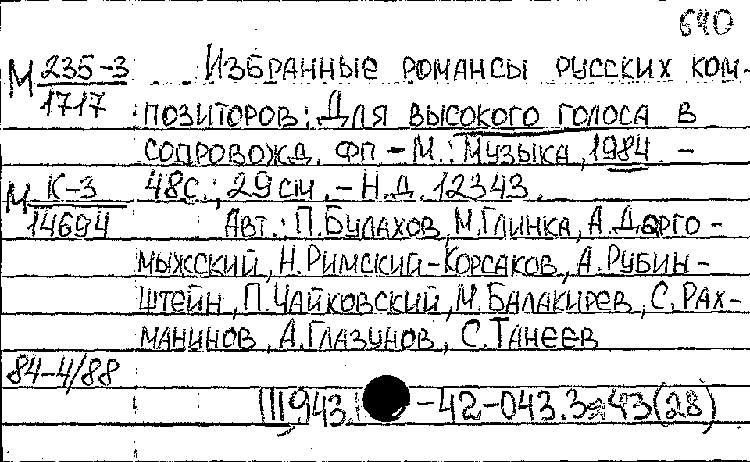 640
М 235-3 Избранные романсы русских ком-
1717 позиторов: Для высокого голоса в
сопровожд. фп. - М.: Музыка, 1984. -
М К-3 48с.; 29 см. - Н.Д. 12343.
14694 Авт.: П.Булахов, М.Глинка, А.Дарго-
мыжский, Н.Римский-Корсаков, А.Рубин-
штейн, П.Чайковский, М.Балакирев, С.Рах-
манинов, А.Глазунов, С.Танеев
84-4/88
Щ943. -42-043.3 я43(28)